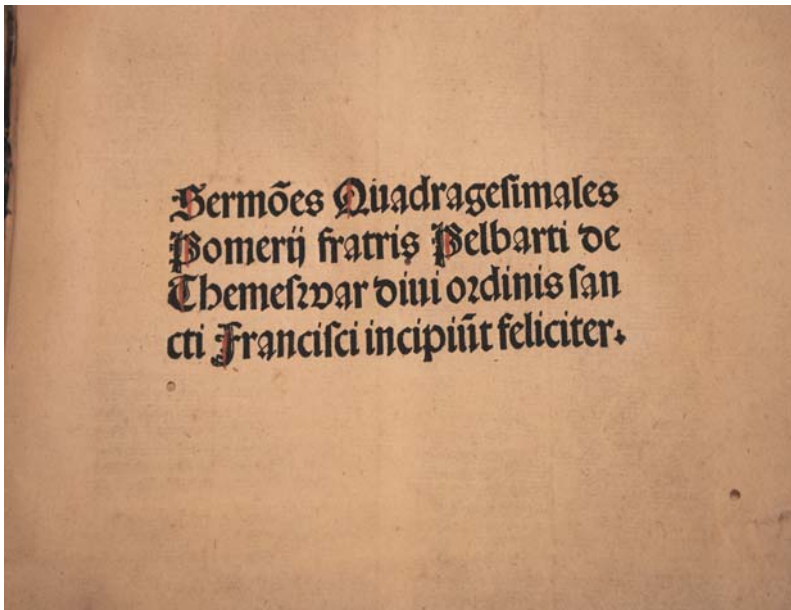 Sermões Quadrageſimales
Pomerij fratris Pelbarti de
Themeſzvar diui ordinis ſan
cti Franciſci incipiūt feliciter.